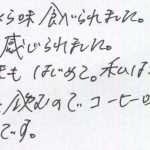 ら味 食べられました。
感じられました。
も はじめて。私は
飲むので コーヒー
です。